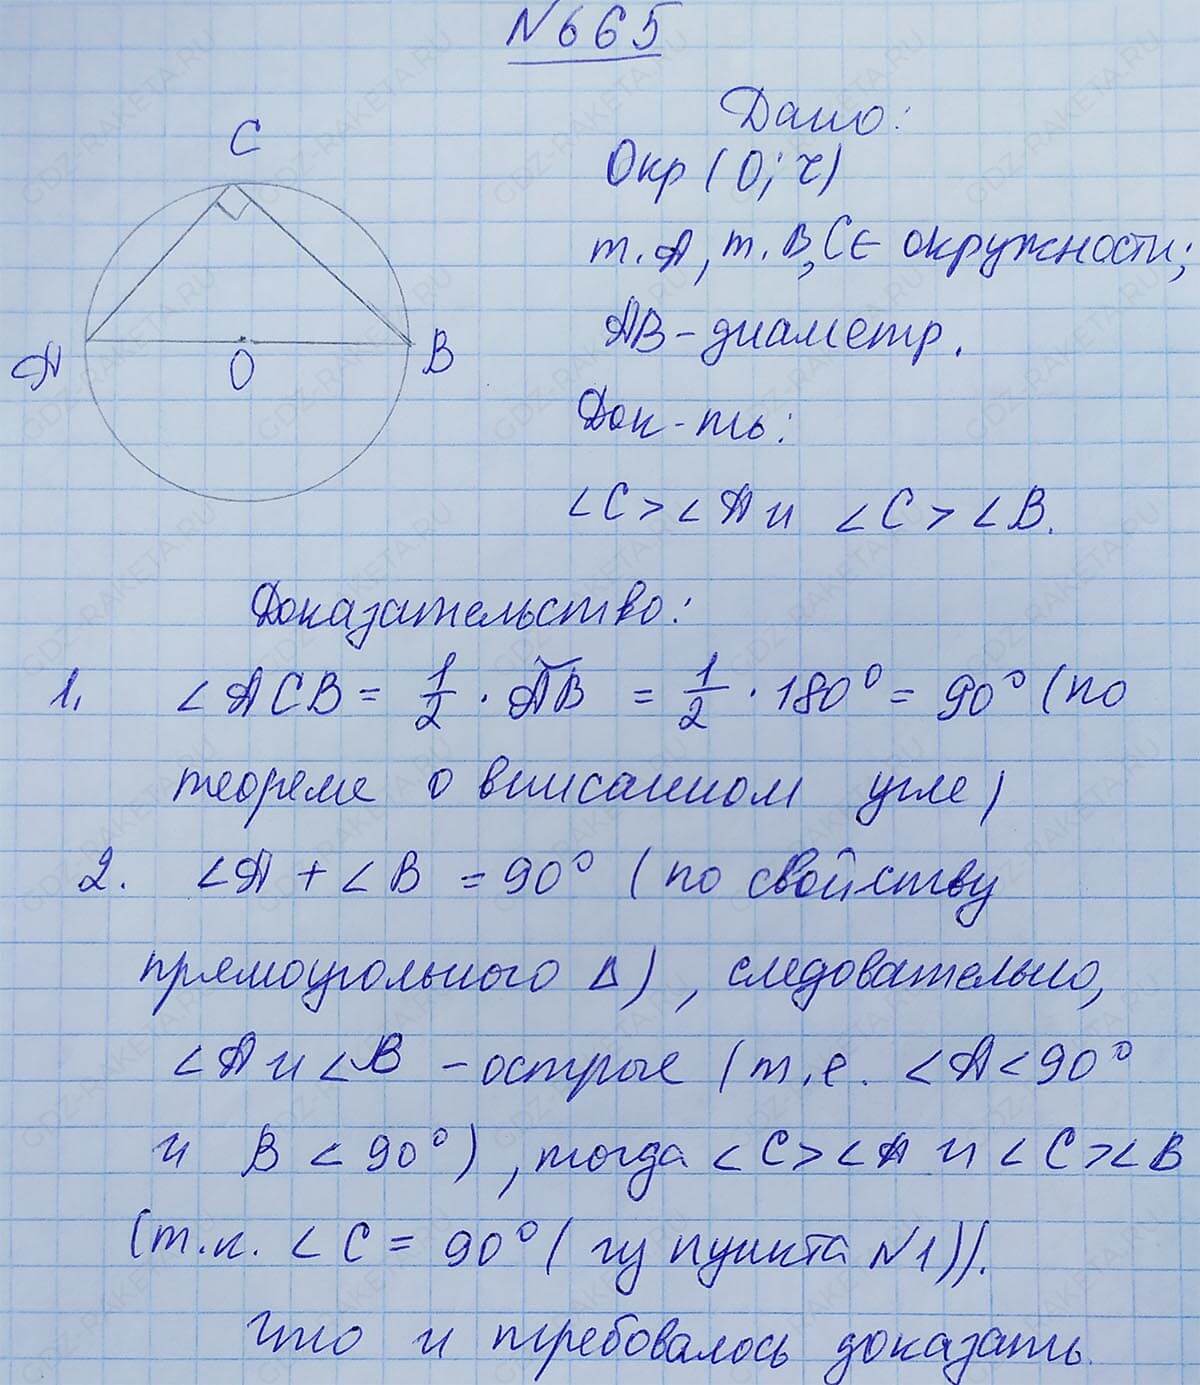 №665
C
A
O
B
Дано:
Окр (O; r)
т. A, т. B, C ∈ окружности;
AB – диаметр.
Док-ть:
∠C > ∠A и ∠C > ∠B.
Доказательство:
1. ∠ACB = 1/2 · ‿AB = 1/2 · 180° = 90° (по
теореме о вписанном угле)
2. ∠A + ∠B = 90° (по свойству
прямоугольного Δ), следовательно,
∠A и ∠B – острые (т.е. ∠A < 90°
и B < 90°), тогда ∠C > ∠A и ∠C > ∠B
(т.к. ∠C = 90° (из пункта №1)).
что и требовалось доказать.
GDZ-RAKETA.RU